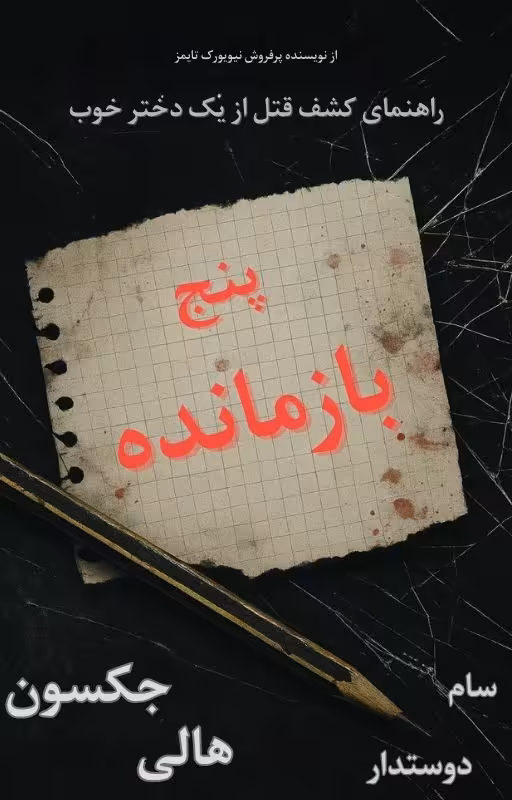 از نویسنده پرفروش نیویورک تایمز
راهنمای کشف قتل از یک دختر خوب
پنج
بازمانده
جکسون
هالی
سام
دوستدار